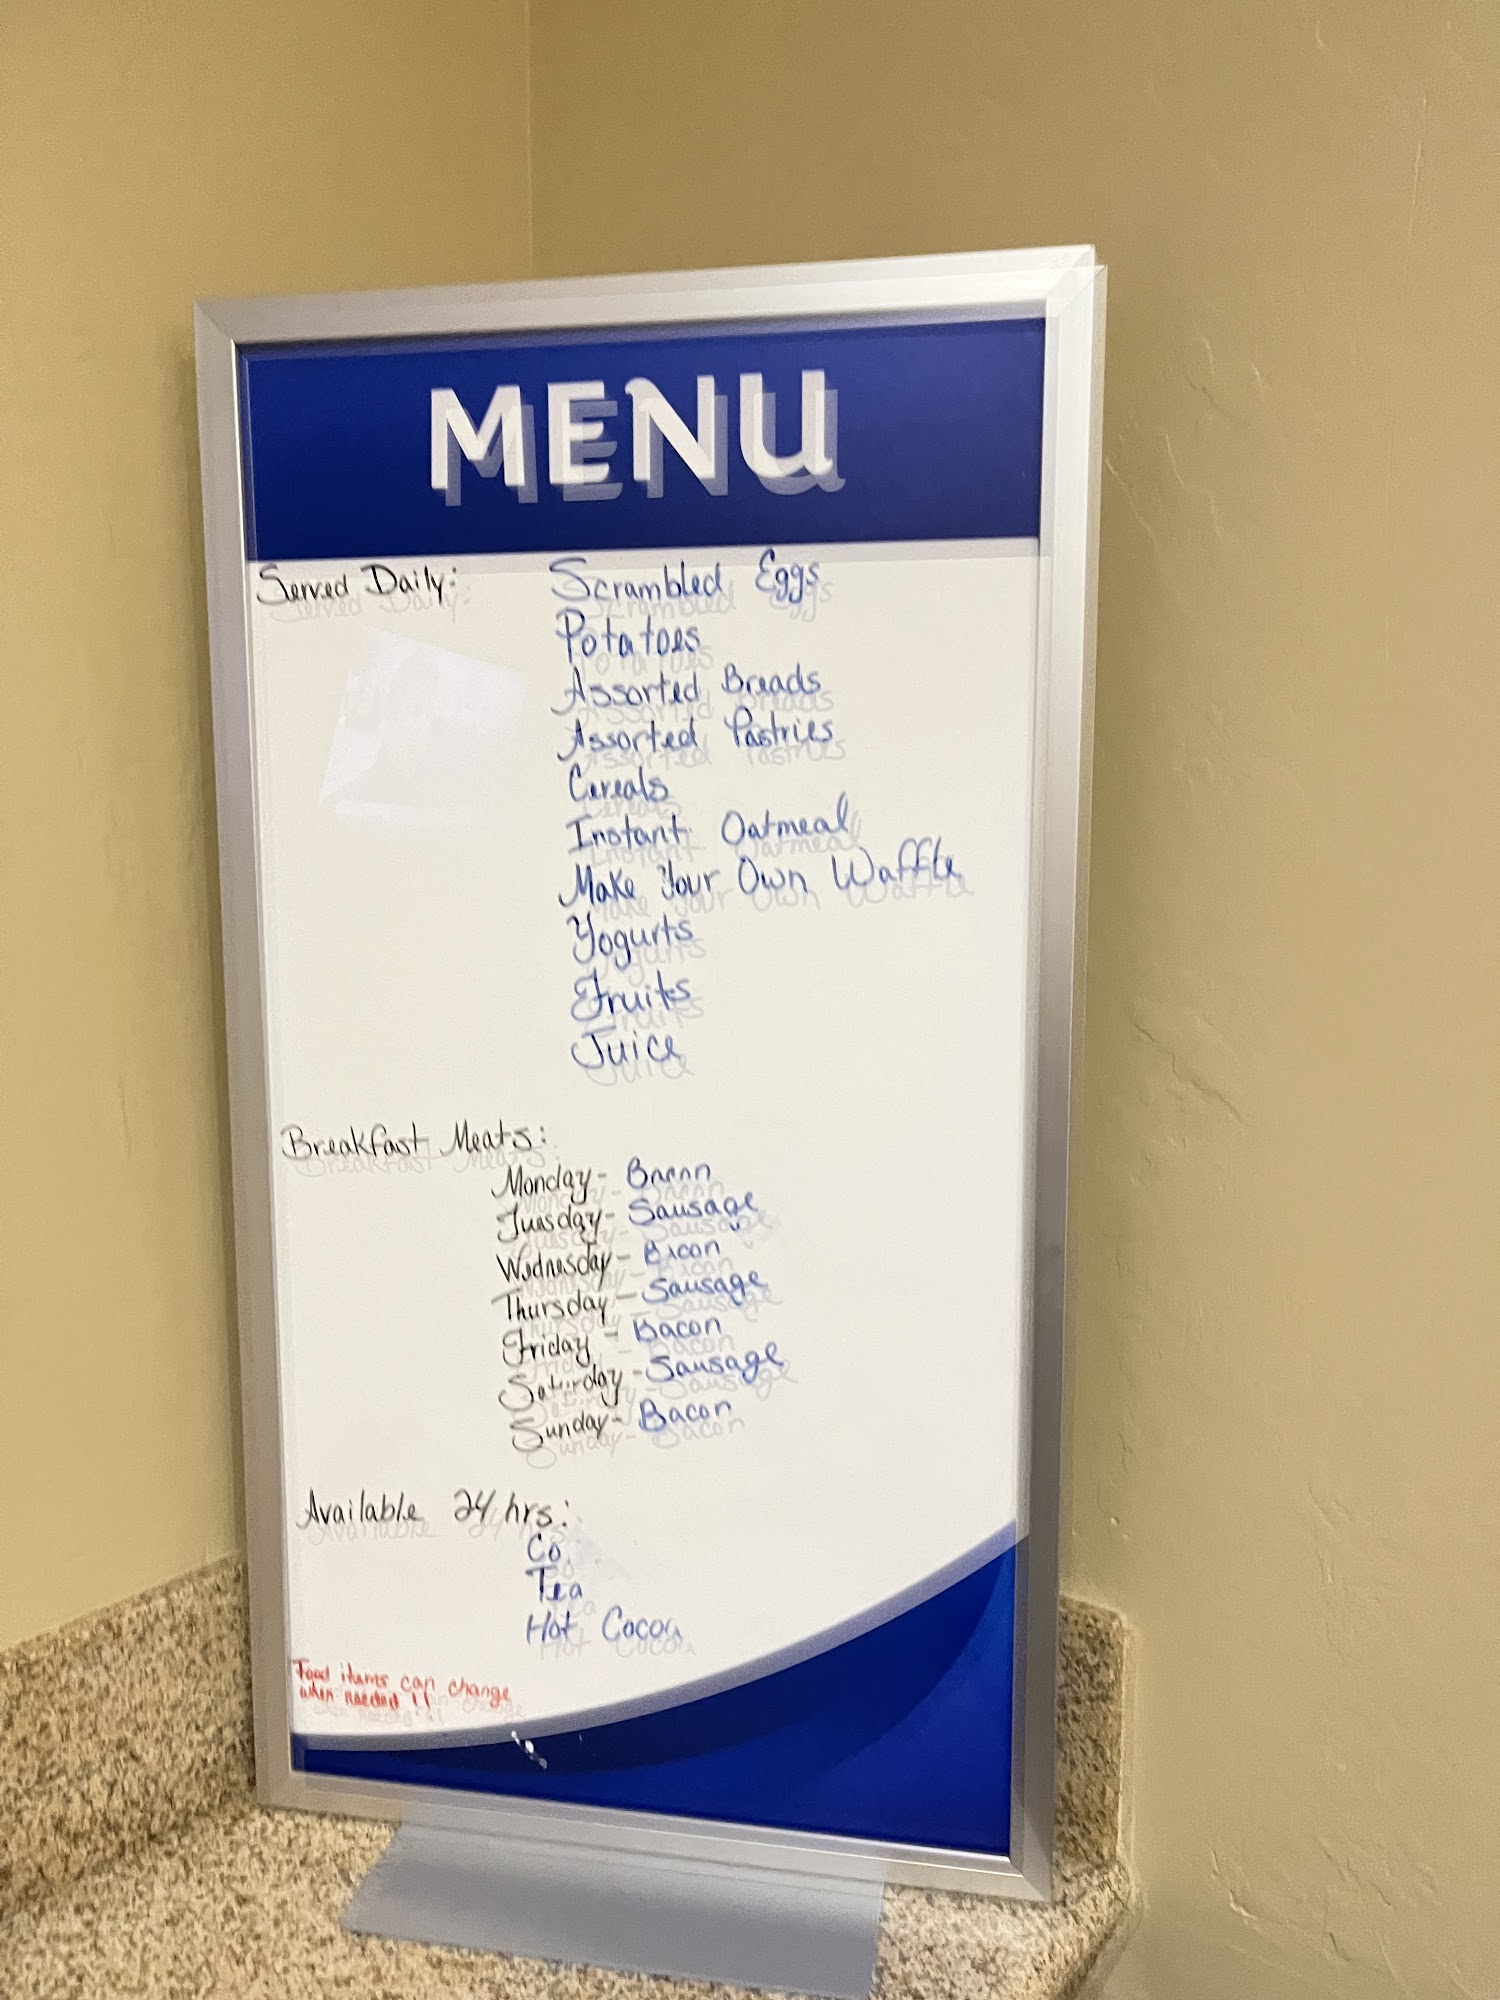 MENU
Served Daily: Scrambled Eggs
Potatoes
Assorted Breads
Assorted Pastries
Cereals
Instant Oatmeal
Make Your Own Waffle
Yogurts
Fruits
Juice
Breakfast Meats:
Monday - Bacon
Tuesday - Sausage
Wednesday - Bacon
Thursday - Sausage
Friday - Bacon
Saturday - Sausage
Sunday - Bacon
Available 24 hrs:
Co
Tea
Hot Cocoa
Food items can change
when needed !!